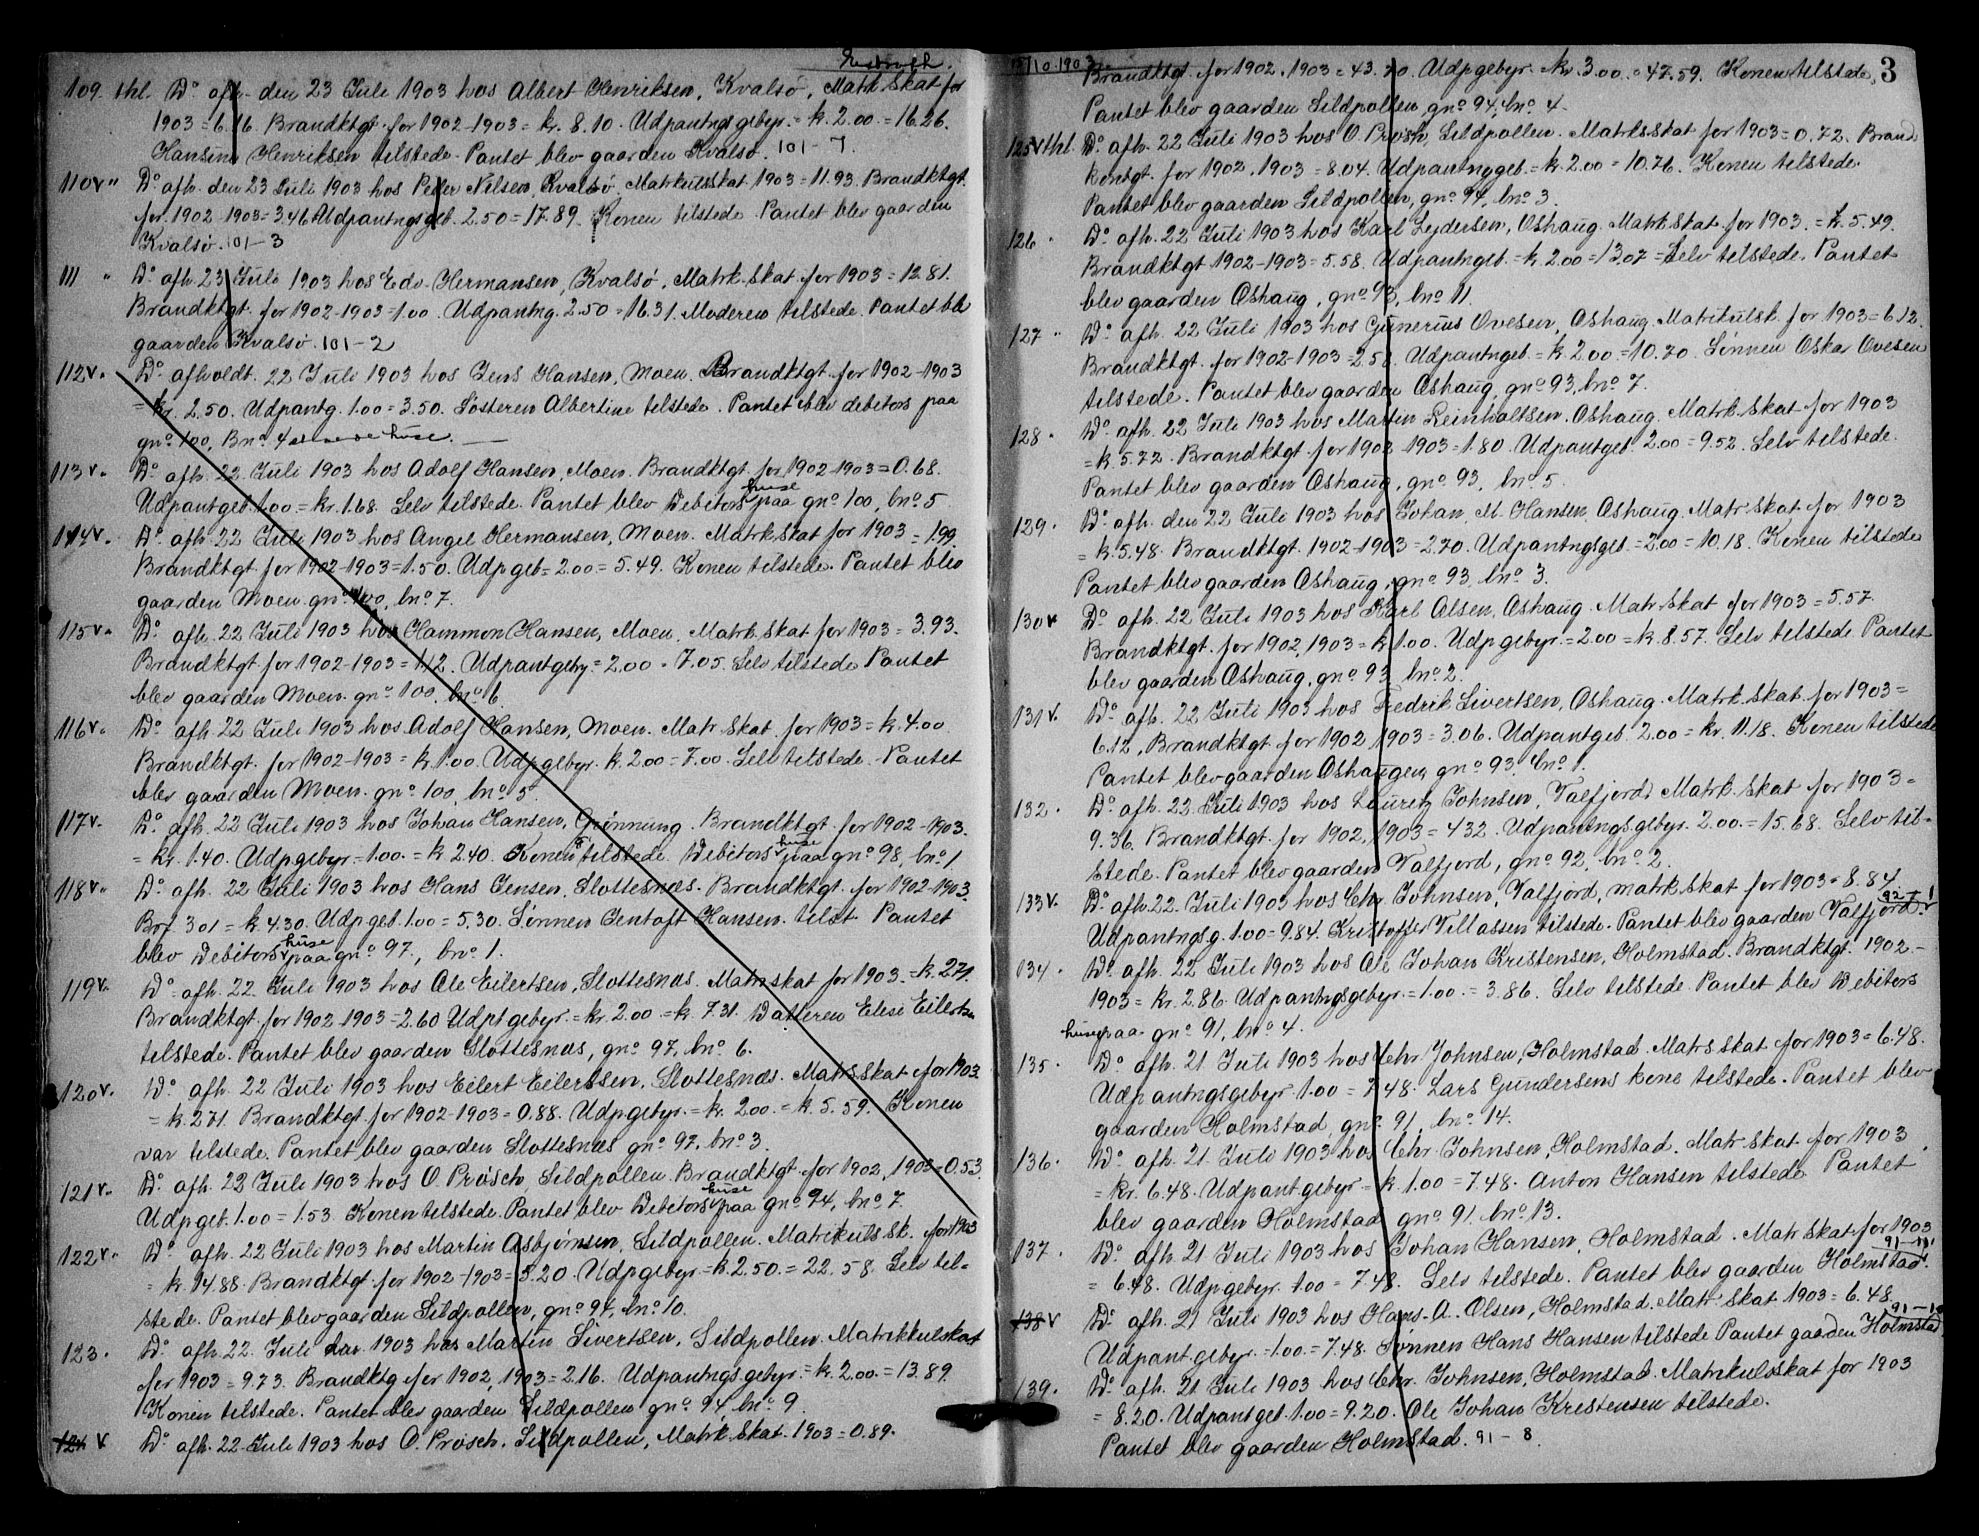 109 thl. Do afh. den 23 Juli 1903 hos Albert Henriksen, Kvalsø, Matr. Skat for
1903 = 6.16. Brandktgt. for 1902-1903 = kr. 8.10. Udpantngsgebyr. = k. 2.00. = 16.26.
Hansine Henriksen tilstede. Pantet blev gaarden Kvalsø. 101 - 7.
110 v " Do afh. den 23 Juli 1903 hos Peder Nilsen, Kvalsø, Matrkulsskat 1903 = 11.93. Brandktgt.
for. 1902-1903 = 3.46 Udpantngsgeb. 2.50 = 17.89. Konen tilstede. Pantet blev gaarden
Kvalsø. 101-3
111 " Do afh. 23 Juli 1903 hos Edv. Hermansen, Kvalsø. Matrk. skat for 1903 = 12.81.
Brandktgt. for 1902-1903 = 1.00. Udpantng. 2.50 = 16.31. Moderen tilstede. Pantet blv
gaarden Kvalsø. 101-2
112 v. Do afholdt. 22 Juli 1903 hos Jens Hansen, Moen. Brandktgt. for 1902-1903
= kr. 2.50. Udpantg. 1.00 = 3.50. Søsteren Albertine tilstede. Pantet blev debitors paa
gno 100, Bno 4 huse.
113 v. Do afh. 22. Juli 1903 hos Adolf Hansen, Moen. Brandktgt. for 1902-1903 = 0.68.
huse
Udpantgeb. 1.00 = kr. 1.68. Selv tilstede. Pantet blev Debitors paa gno 100, bno 5
114 v. Do afh. 22 Juli 1903 hos Angel Hermansen, Moen. Matrk. skat for 1903 = 1.99.
Brandktgt. for 1902-1903 = 1.50. Udpgeb = 2.00 = 5.49. Konen tilstede. Pantet blev
gaarden Moen. gno 100, bno 7.
115 v. Do afh. 22 Juli 1903 hos Hammon Hansen, Moen. Matrk. skat for 1903 = 3.93.
Brandktgt for 1902-1903 = 1.12. Udpantgeby = 2.00 = 7.05. Selv tilstede Pantet
blev gaarden Moen. gno 100, bno 6.
116 v. Do afh. 22 Juli 1903 hos Adolf Hansen, Moen. Matr. skat. for 1903 = k. 4.00
Brandktgt. for 1902-1903 = k. 1.00. Udpgebyr. k. 2.00 = 7.00. Selv tilstede. Pantet
blev gaarden Moen. gno 100, bno 5.
117 v. Do afh. 22 Juli 1903 hos Johan Hansen, Grinnung. Brandktgt. for 1902-1903.
huse
= kr. 1.40. Udpgebyr. = 1.00. = k 2.40. Konen tilstede. Debitors paa gno 98, bno 1
118 v. Do afh. 22 Juli 1903 hos Hans Jensen, Slottesnæs. Brandktgt. for 1902-1903.
Brf 301 = k 4.30. Udpgeb. 1.00 = 5.30. Sønnen Jentoft Hansen tilst. Pantet
huse
blev Debitors paa gno 97, bno 1.
119 v. Do afh. 22. Juli 1903 hos Ole Eilertsen, Slottesnæs. Matrskat for 1903. = k. 2.71.
Brandktgt. for 1902-1903 = 2.60 Udptgebyr. = kr. 2.00. = k 7.31. Datteren Elise Eilertsen
tilstede. Pantet blev gaarden Slottesnæs, gno 97, bno 6.
120 v. Do afh. 22 Juli 1903 hos Eilert Eilertsen, Slottesnæs. Matr. skat for 1903.
= k. 2.71. Brandktgt. for 1902-1903 = 0.88. Udpgebyr. = kr. 2.00. = k. 5.59. Konen
var tilstede. Pantet blev gaarden Slottesnæs gno 97, bno 3.
121 v. Do afh. 22 Juli 1903 hos O. Prøsch, Sildpollen. Brandktgt. for 1902, 1903 = 0.53
huse
Udpgeb. 1.00 = 1.53. Konen tilstede. Pantet blev Debitors paa gno 94, bno 7.
122 v. Do afh. 22 Juli 1903 hos Martin Asbjørnsen, Sildpollen. Matrikuls sk. for 1903
= k. 14.88. Brandktgt. for 1902-1903 = 5.20. Udpgebyr = k 2.50. = 22.58. Selv til-
stede. Pantet blev gaarden Sildpollen, gno 94, bno 10.
123. Do afh. 22. Juli 1903 hos Martin Sivertsen, Sildpollen. Matrikkulskat
for 1903 = 9.73. Brandktg for 1902, 1903 = 2.16. Udpantngsgebyr. = k. 2.00. = 13.89.
Konen tilstede. Pantet blev gaarden Sildpollen gno 94, bno 9.
124 v. Do afh. 22. Juli 1903 hos O. Prøsch, Sildpollen, Matrk. Skat. 1903 = 0.89.
/10 1903
3
Brandktgt. for 1902, 1903 = 43.70. Udpgebyr. kr. 3.00. = 47.59. Konen tilstede.
Pantet blev gaarden Sildpollen, gno 94, bno 4.
125 v thl. Do afh. 22 Juli 1903 hos O. Prøsch, Sildpollen. Matrksskat for 1903 = 0.72. Brand
kontgt. for 1902, 1903 = 8.04. Udpantnggeb. = k. 2.00 = 10.76. Konen tilstede.
Pantet blev gaarden Sildpollen, gno 94, bno 3.
126. Do afh. 22 Juli 1903 hos Karl Lydersen, Oshaug. Matrk. skat for 1903. = k. 5.49.
Brandktgt 1902-1903 = 5.58. Udpantngeb. = k 2.00 = 13.07 = Selv tilstede. Pantet
blev gaarden Oshaug, gno 93, bno 11.
127 " Do afh. 22 Juli 1903 hos Gunerius Ovesen, Oshaug. Matrikulsk. for 1903 = 6.12.
Brandktgt. for 1902-1903 = 2.58. Udpantngeb. = k 2.00 = 10.70. Sønnen Oskar Ovesen
tilstede. Pantet blev gaarden Oshaug, gno 93, bno 7.
128. Do afh. 22 Juli 1903 hos Martin Reinholtsen, Oshaug. Matrk. skat for 1903
= k 5.72. Brandktgt. for 1902-1903 = 1.80. Udpantgeb. 2.00 = 9.52. Selv tilstede.
Pantet blev gaarden Oshaug, gno 93, bno 5.
129. Do afh. den 22 Juli 1903 hos Johan M. Hansen, Oshaug. Matr. skat for 1903
= k. 5.48. Brandktgt. 1902-1903 = 2.70. Udpantngsgeb. = 2.00 = 10.18. Konen tilstede
Pantet blev gaarden Oshaug, gno 93, bno 3.
130 v Do afh. 22 Juli 1903 hos Karl Olsen, Oshaug. Matr. skat for 1903 = 5.57.
Brandktgt. for 1902, 1903 = k 1.00. Udpgebyr. = 2.00 = k. 8.57. Selv tilstede Pantet
blev gaarden Oshaug, gno 93 bno 2.
131 v. Do afh. 22 Juli 1903 hos Fredrik Sivertsen, Oshaug. Matrk. skat. for 1903 =
6.12, Brandktgt. for 1902, 1903 = 3.06. Udpantgeb. 2.00 = kr. 11.18. Konen tilstede
Pantet blev gaarden Oshaugen, gno 93, bno 1.
132. Do afh. 22 Juli 1903 hos Lauritz Johnsen, Valfjord. Matrk. skat for 1903 =
9.36. Brandktgt. for 1902, 1903 = 4.32. Udpantngsgebyr. 2.00. = 15.68. Selv til-
stede. Pantet blev gaarden Valfjord, gno 92, bno 2.
133 v. Do afh. 22. Juli 1903 hos Chr. Johnsen, Valfjord, matrk. skat for 1903 = 8.84
92 - 1
Udpantngsg. 1.00 = 9.84. Kristoffer Tillassen tilstede. Pantet blev gaarden Valfjord.
134. Do afh. 22 Juli 1903 hos Ole Johan Kristensen, Holmstad. Brandktgt. 1902-
1903 = kr. 2.86. Udpantngsgebyr. = 1.00. = 3.86. Selv tilstede Pantet blev Debitors
huse paa gno 91, bno 4.
135. Do afh. 21 Juli 1903 hos Chr. Johnsen, Holmstad. Matrk. skat for 1903 = 6.48.
Udpantngsgebyr 1.00 = 7.48. Lars Gundersens kone tilstede. Pantet blev
gaarden Holmstad, gno 91, bno 14.
136. Do afh. 21 Juli 1903 hos Chr. Johnsen, Holmstad. Matr. skat for 1903
= kr. 6.48. Udpantgebyr = k 1.00 = 7.48. Anton Hansen tilstede Pantet
blev gaarden Holmstad gno 91, bno 13.
137. Do afh. 21 Juli 1903 hos Johan Hansen, Holmstad. Matr. skat for 1903
91-11
= 6.48. Udpgebyr. 1.00 = 7.48. Selv tilstede. Pantet blev gaarden Holmstad.
138 v Do afh. 21 Juli 1903 hos Hans A. Olsen, Holmstad. Matr. skat 1903 = 6.48
91-10
Udpantgebyr. = 1.00. = 7.48. Sønnen Hans Hansen tilstede Pantet gaarden Holmstad.
139. Do afh. 21 Juli 1903 hos Chr. Johnsen, Holmstad. Matrikulskat for 1903
= 8.20. Udpantgeb. 1.00 = 9.20. Ole Johan Kristensen tilstede.
Pantet blev gaarden Holmstad. 91 - 8.